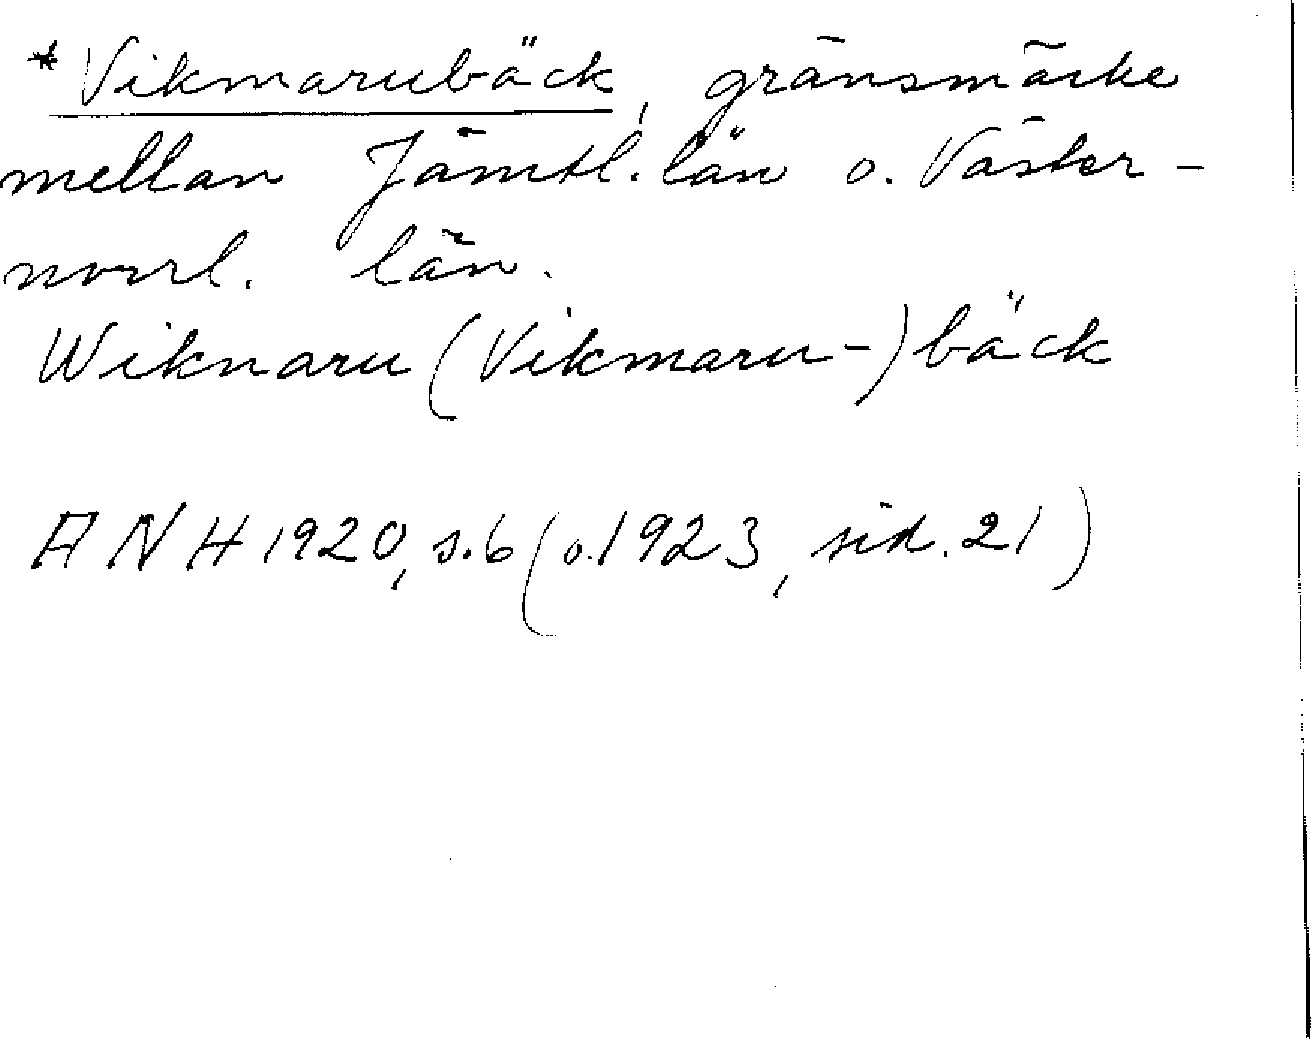 *Vikmarubäck, gränsmärke
mellan Jämtl. län o. Väster-
norrl. län.
Wiknaru (Vikmaru-) bäck
ÅNH 1920, s. 6 (o. 1923, sid. 21)